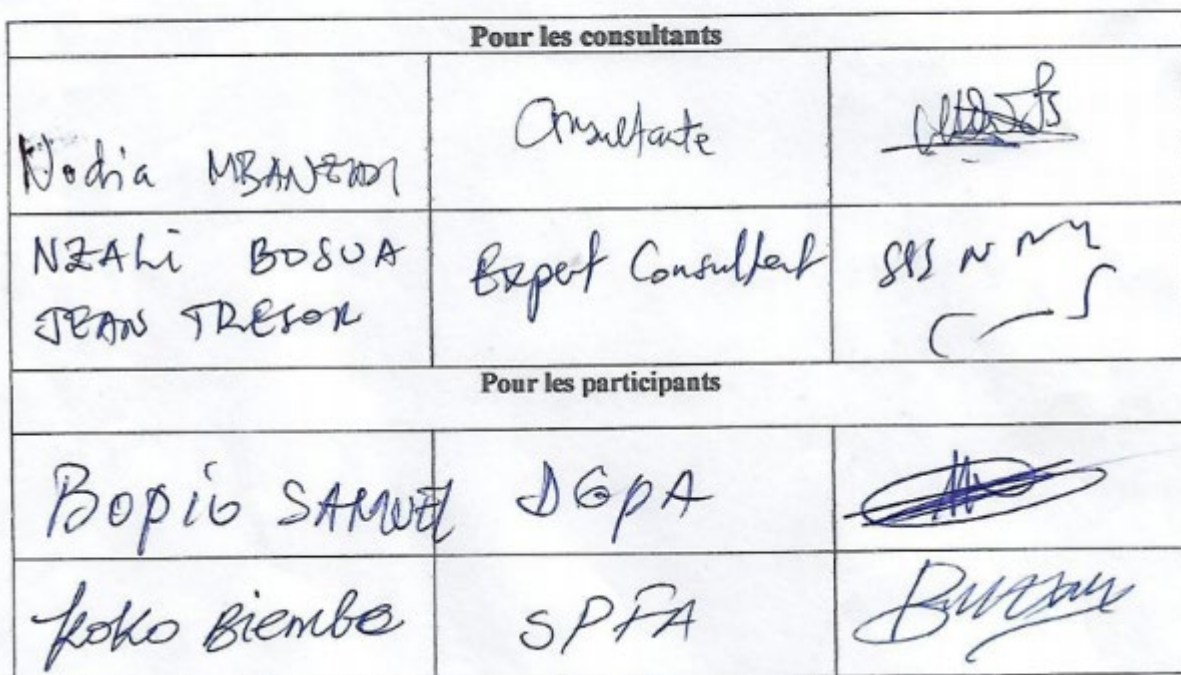 Pour les consultants
Nadia MBANZIDI Consultante
NZALI BOSUA Expert Consultant
JEAN TRESOR
Pour les participants
BOPIO SAMUEL DGPA
KOKO Biembe SPFA